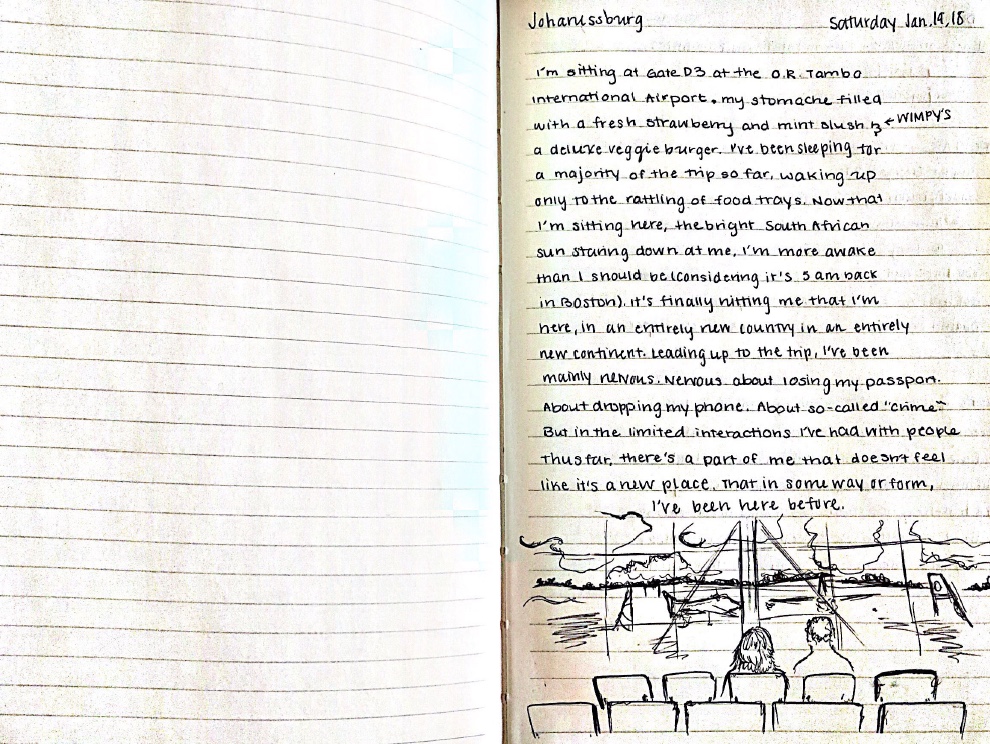 Johanssburg Saturday Jan.14,18
I'm sitting at Gate D3 at the O.R. Tambo
International Airport. my stomache filled
with a fresh strawberry and mint slush & ← WIMPY'S
a deluxe veggie burger. I've been sleeping for
a majority of the trip so far, waking up
only to the rattling of food trays. Now that
I'm sitting here, the bright South African
sun staring down at me, I'm more awake
than I should be (considering it's 5 am back
in Boston). It's finally hitting me that I'm
here, in an entirely new country in an entirely
new continent. Leading up to the trip, I've been
mainly nervous. Nervous about losing my passport.
About dropping my phone. About so-called "crime"
But in the limited interactions I've had with people
thus far, there's a part of me that doesn't feel
like it's a new place. That in some way or form,
I've been here before.